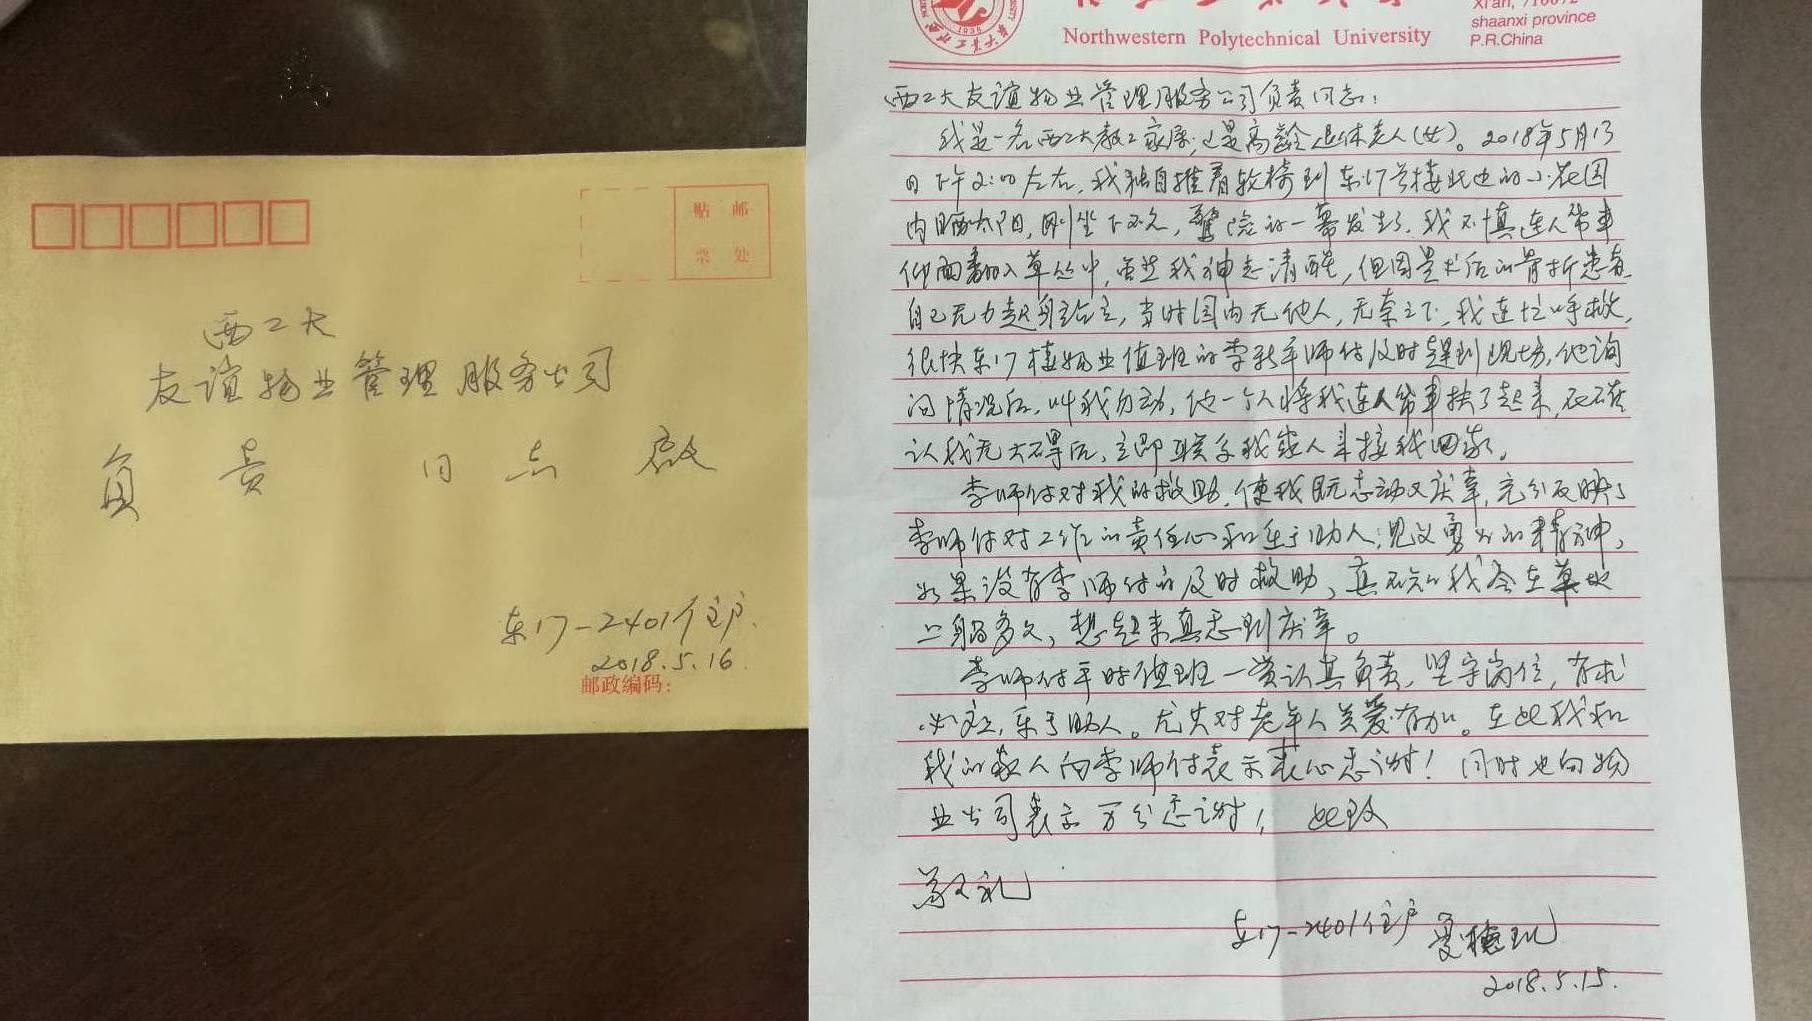 贴 邮
票 处
西工大
友谊物业管理服务公司
负 责 同 志 启
东17-2401住户
2018.5.16
邮政编码:
1938
Northwestern Polytechnical University
shaanxi province
P.R.China
西工大友谊物业管理服务公司负责同志:
我是一名西工大教工家属,也是高龄退休老人(女)。2018年5月13
日下午2:00左右,我独自推着轮椅到东17号楼北边的小花园
内晒太阳,刚坐下不久,惊险的一幕发生了,我不慎连人带车
仰面翻入草丛中,虽然我神志清醒,但因是术后的骨折患者
自己无力起身站立,当时园内无他人,无奈之下,我连忙呼救,
很快东17楼物业值班的李新平师付及时赶到现场,他询
问情况后,叫我勿动,他一个人将我连人带车扶了起来,在确
认我无大碍后,立即联系我家人来接我回家。
李师付对我的救助,使我既感动又庆幸,充分反映了
李师付对工作的责任心和乐于助人,见义勇为的精神,
如果没有李师付的及时救助,真不知我会在草坡
上躺多久,想起来真感到庆幸。
李师付平时值班一贯认真负责,坚守岗位,有求
必应,乐于助人。尤其对老年人关爱有加。在此我和
我的家人向李师付表示衷心感谢!同时也向物
业公司表示万分感谢! 此致
敬礼
东17-2401住户
2018.5.15.